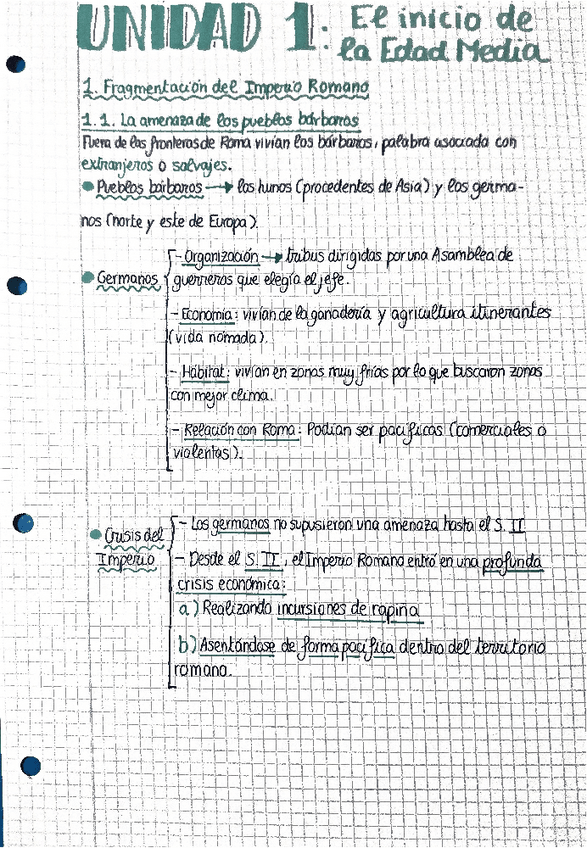 UNIDAD 1: El inicio de
la Edad Media
1. Fragmentación del Imperio Romano
1.1. La amenaza de los pueblos bárbaros
Fuera de las fronteras de Roma vivían los bárbaros, palabra asociada con
extranjeros o salvajes.
Pueblos bárbaros → los hunos (procedentes de Asia) y los germa-
nos (norte y este de Europa).
- Organización → tribus dirigidas por una Asamblea de
Germanos guerreros que elegía el jefe.
- Economía: vivían de la ganadería y agricultura itinerantes
(vida nómada).
- Hábitat: vivían en zonas muy frías por lo que buscaron zonas
con mejor clima.
- Relación con Roma: Podían ser pacíficas (comerciales o
violentas).
- Los germanos no supusieron una amenaza hasta el S. II
Crisis del
Imperio - Desde el S. II, el Imperio Romano entró en una profunda
crisis económica:
a) Realizando incursiones de rapiña
b) Asentándose de forma pacífica dentro del territorio
romano.